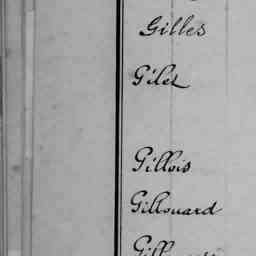 Gilles
Gilet
Gillois
Gillouard